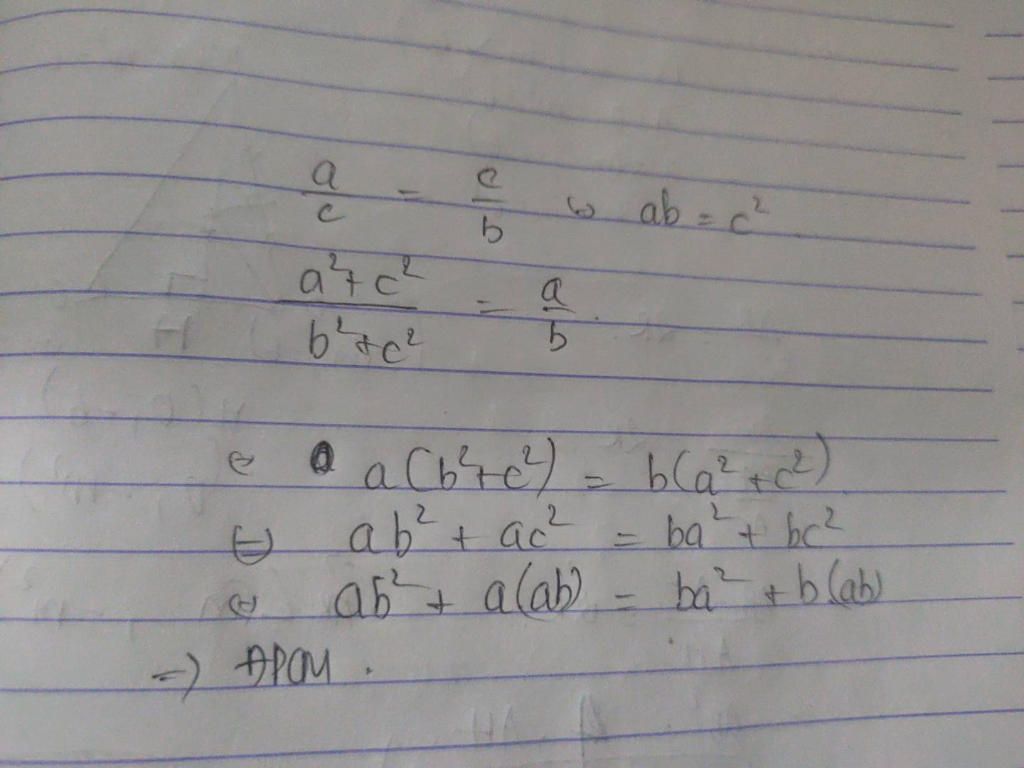 a/c = c/b ⇔ ab = c²
a²+c² / b²+c² = a/b.
⇔ a(b²+c²) = b(a²+c²)
⇔ ab² + ac² = ba² + bc²
⇔ ab² + a(ab) = ba² + b(ab)
⇒ ĐPCM.